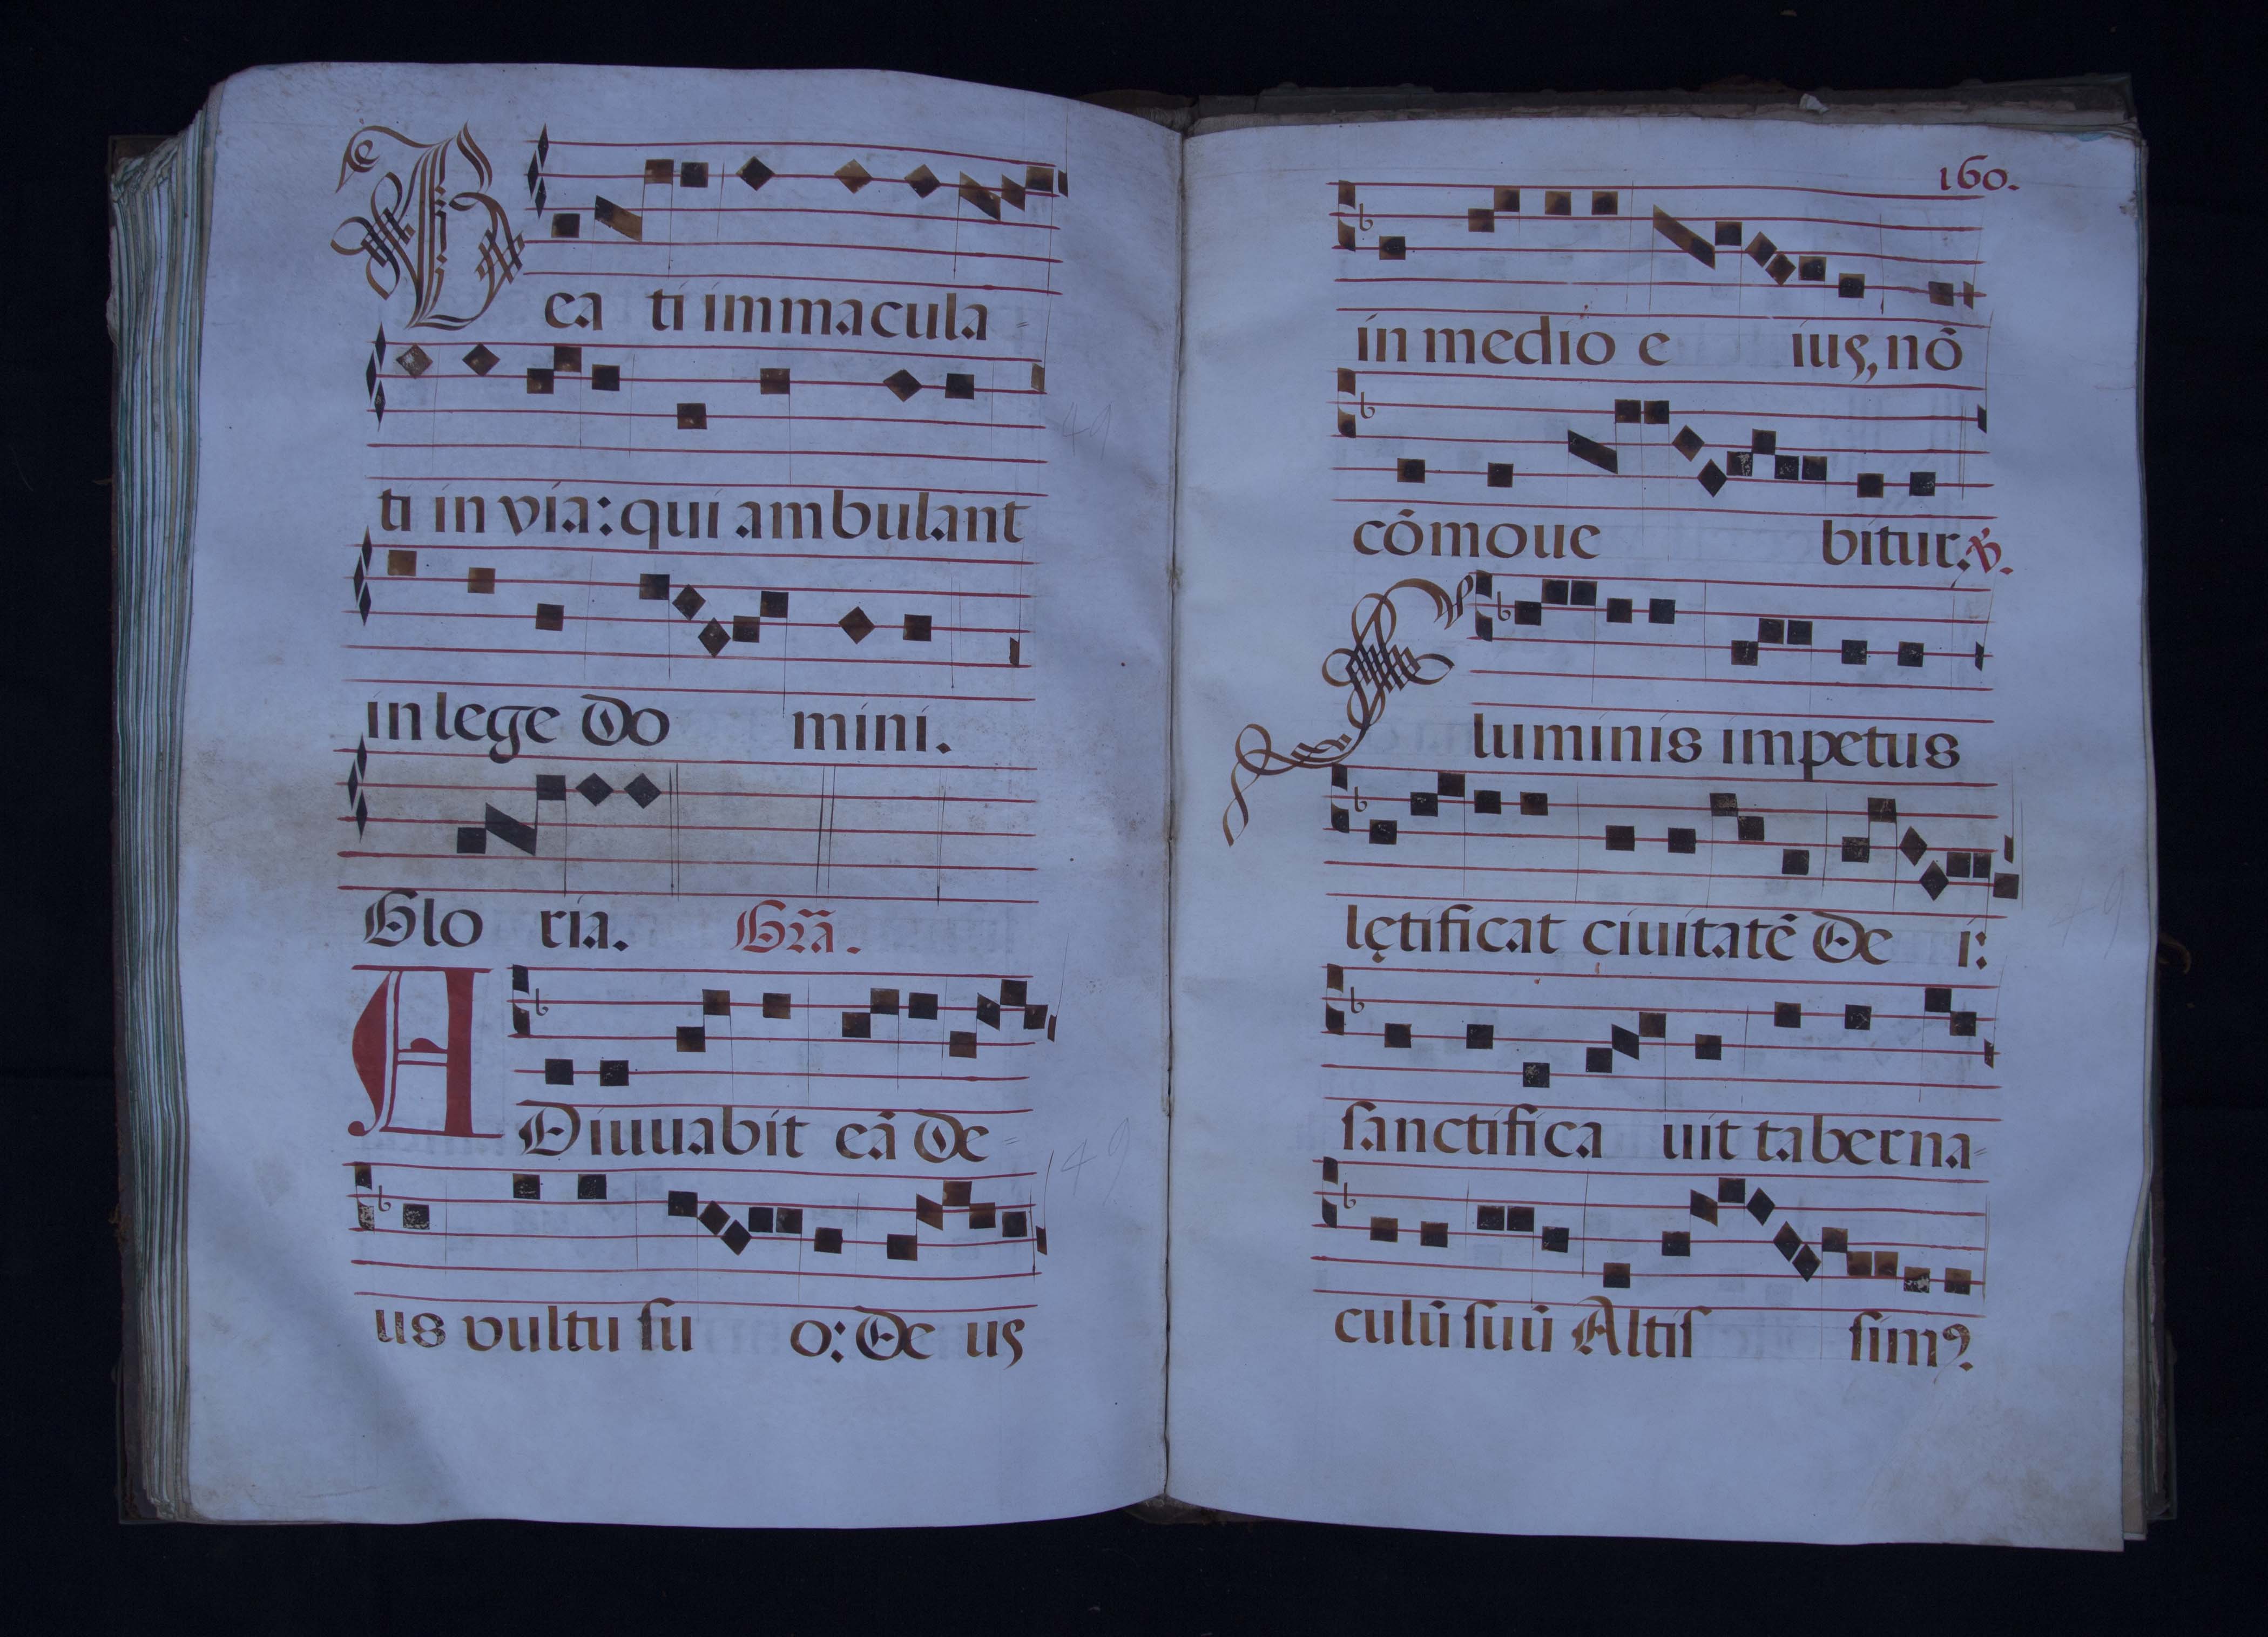 Bea ti immacula=
ti in via: qui ambulant
in lege Do mini.
Glo ria. Gr̃a.
ADiuuabit eã De=
us vultu ſu o: De us
149
160.
in medio e ius, nõ
cõmoue bitur. ℣.
Fluminis impetus
lętificat ciuitatẽ De i:
ſanctifica uit taberna=
culũ ſuũ Altiſ ſimꝰ.